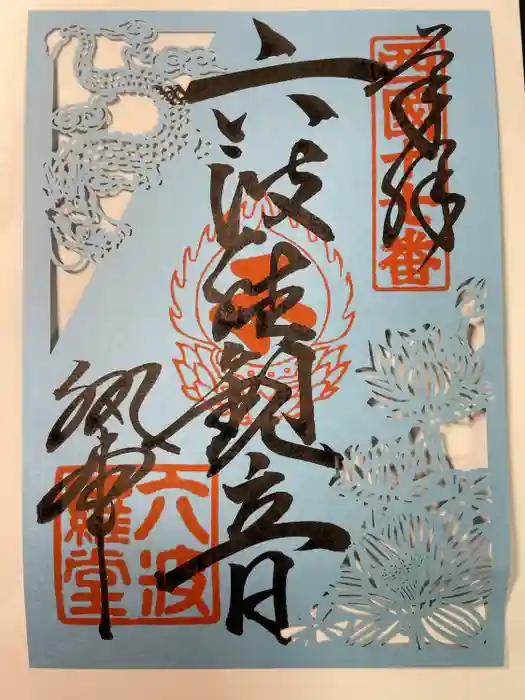 奉拝
西國十七番
六波陀観音
六波羅堂